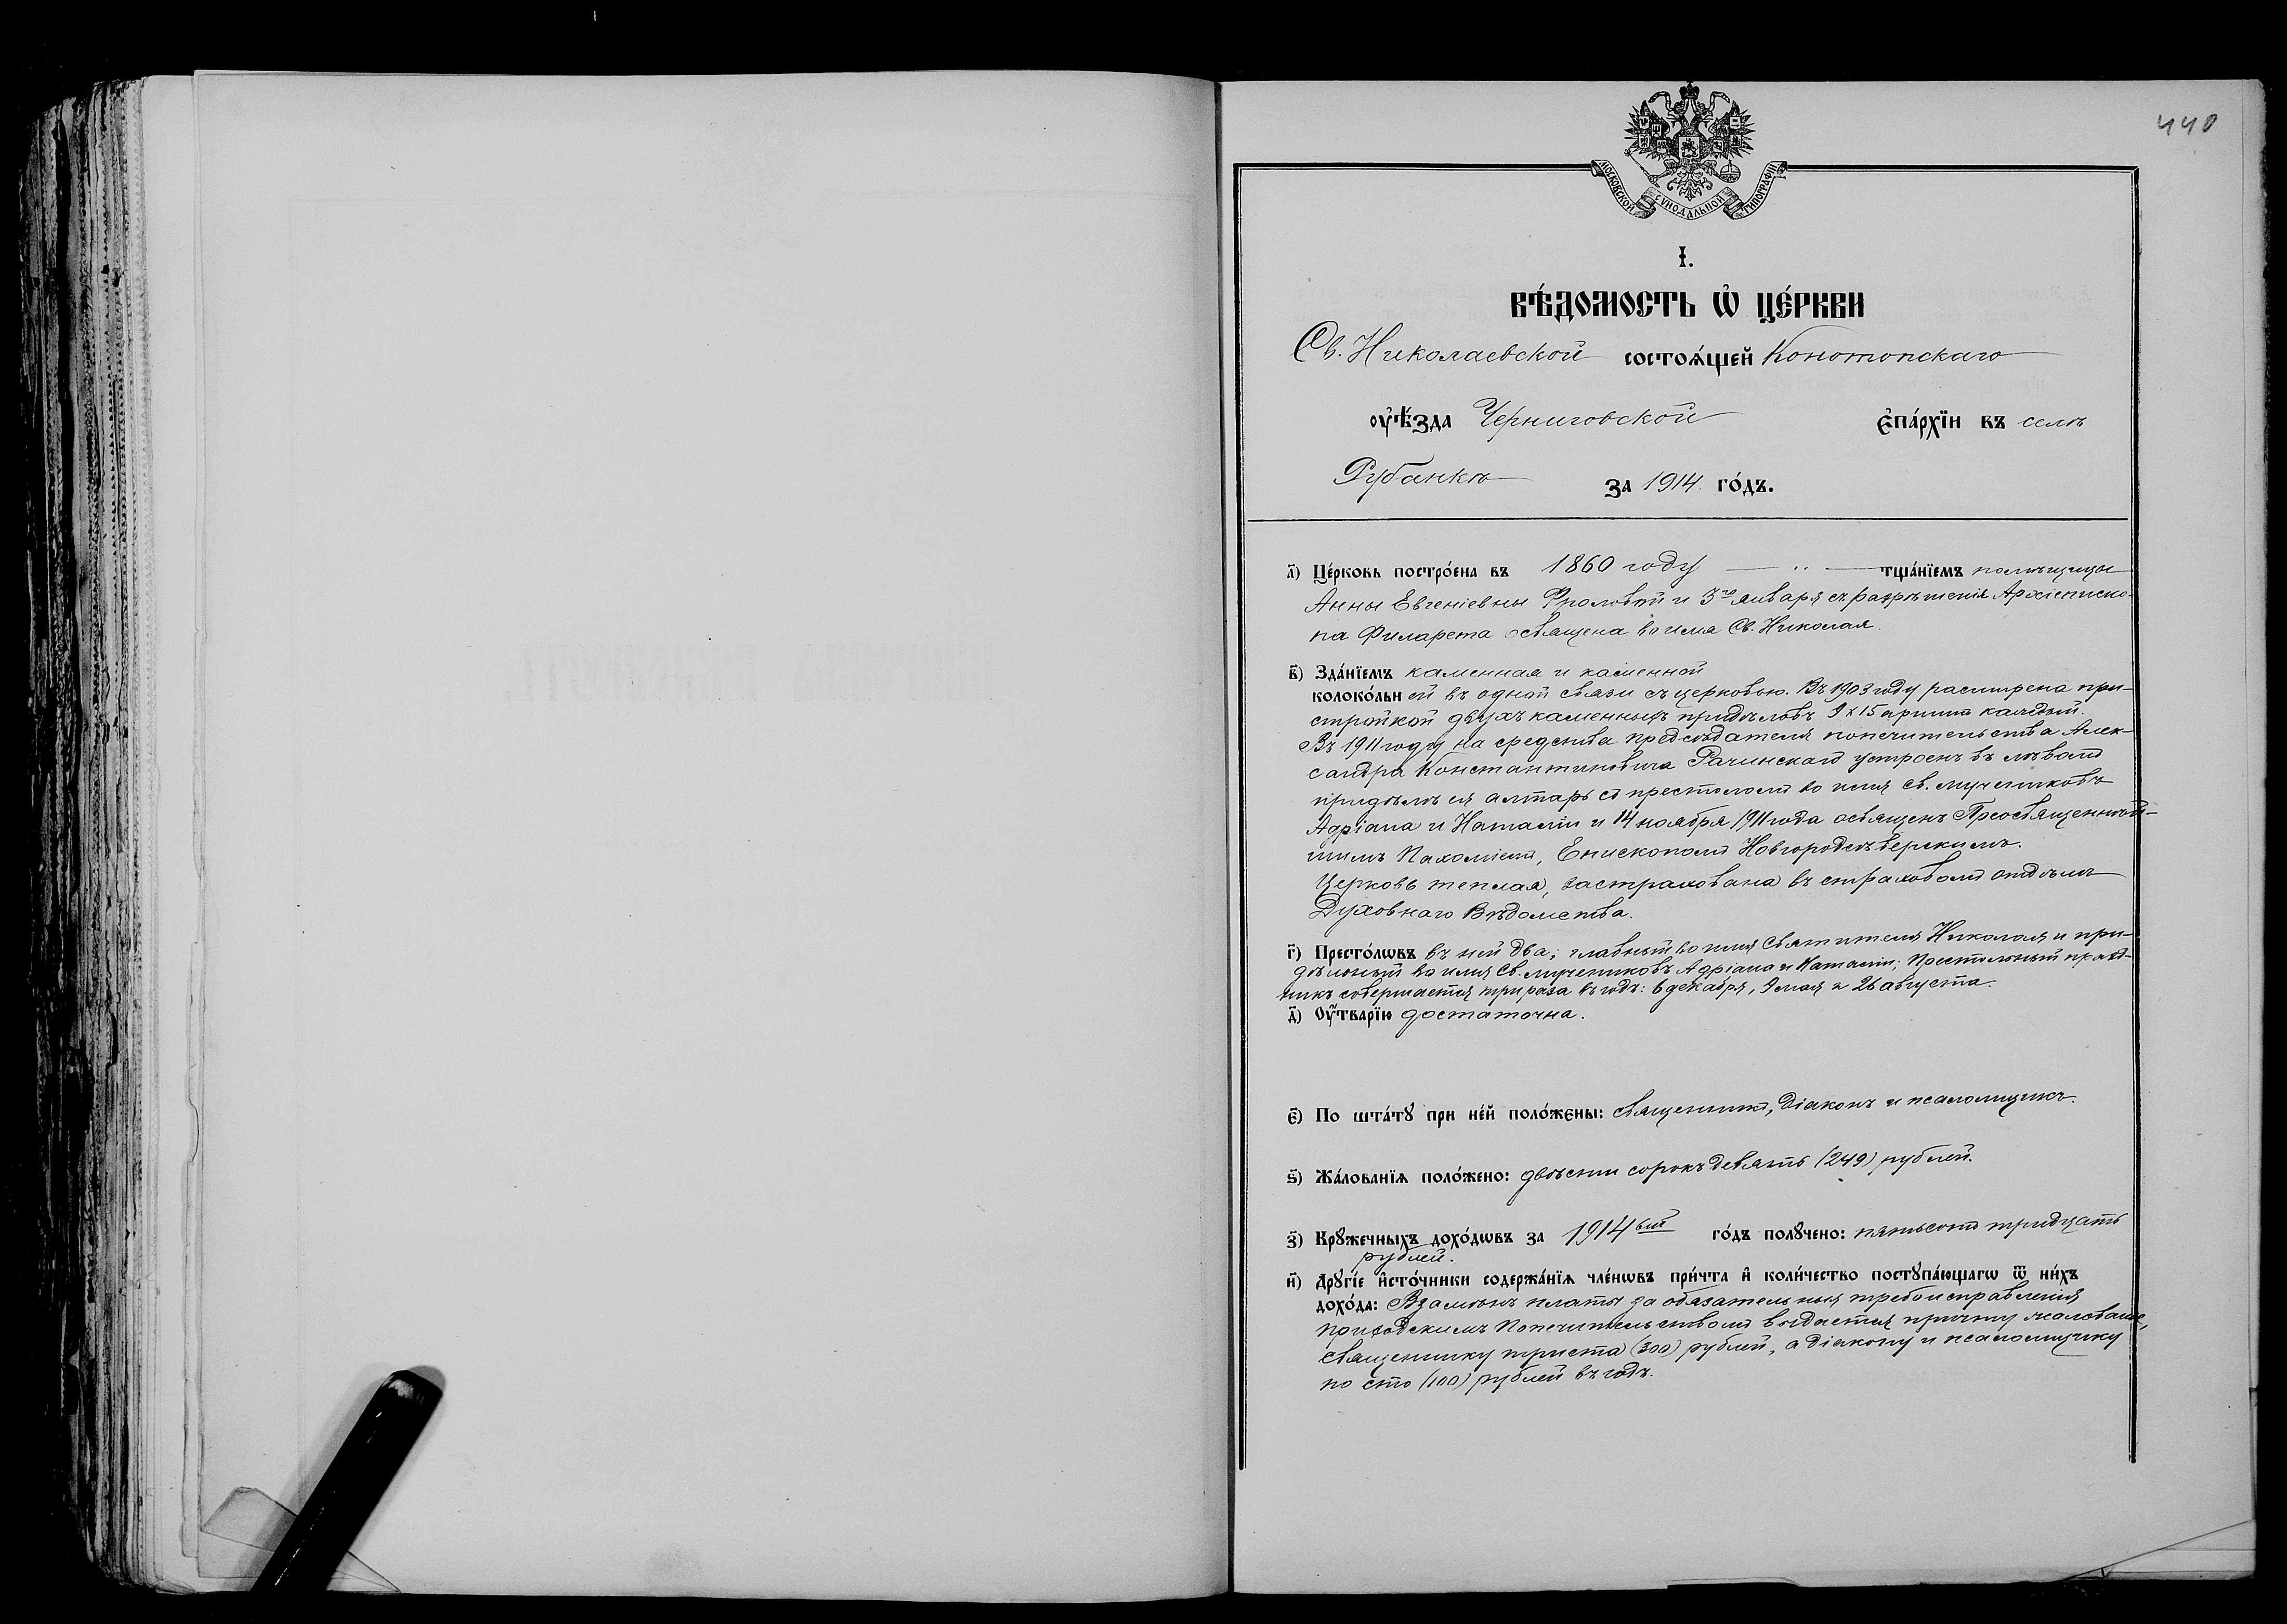 440
МОСКОВСКОЙ СѴНОДАЛЬНОЙ ТИПОГРАФІИ
І.
ВѢ́ДОМОСТЬ Ѡ҆ ЦЕ́РКВИ
Св. Николаевской состоѧ́щей Конотопскаго
ᲂу҆ѣ́зда Черниговской є҆па́рхїи въ селѣ
Рубанкѣ за 1914 го́дъ.
а҃) Це́рковь постро́ена въ 1860 году тща́нїемъ помѣщицы
Анны Евгеніевны и 3го Января съ разрѣшенія Архіеписко-
па Филарета освящена во имя Св. Николая.
в҃) Зда́нїемъ каменная и каменной
колоко́льн ей въ одной связи съ церковью. Въ 1903 году расширена при-
стройкой двухъ каменныхъ придѣловъ 9х15 аршинъ каждый.
Въ 1911 году на средства предсѣдателя попечительства Алек-
сандра Константиновича Рачинскаго устроенъ въ лѣвомъ
придѣлѣ ея алтарь съ престоломъ во имя св. мучениковъ
Адріана и Наталіи и 14 ноября 1911 года освященъ Преосвященнѣй-
шимъ Пахоміемъ, Епископомъ Новгородсѣверскимъ.
Церковь теплая, застрахована въ страховомъ отдѣлѣ
Духовнаго Вѣдомства.
г҃) Престо́лѡвъ въ ней два; главный во имя Святителя Николая и при-
дѣльный во имя Св. мучениковъ Адріана и Наталіи; Престольный празд-
никъ совершается три раза въ годъ: 6 декабря, 9 мая и 26 августа.
д҃) Оу҆́тварїю достаточна.
є҃) По шта́тꙋ при не́й поло́жены: священникъ, діаконъ и псаломщикъ.
ѕ҃) Жа́лованїѧ поло́жено: двѣсти сорокъ девять (249) рублей.
з҃) Крꙋжечныхъ дохо́дѡвъ за 1914ый го́дъ полꙋчено: пятьсотъ тридцать
рублей.
и҃) Дрꙋгі́е и҆сто́чники содержа́нїѧ чле́нѡвъ при́чта и҆ коли́чество постꙋпа́ющагѡ ѿ ни́хъ
дохо́да: Взамѣнъ платы за обязательныя требоисправленія
приходскимъ Попечительствомъ выдается причту жалованье,
священнику триста (300) рублей, а діакону и псаломщику
по сто (100) рублей въ годъ.